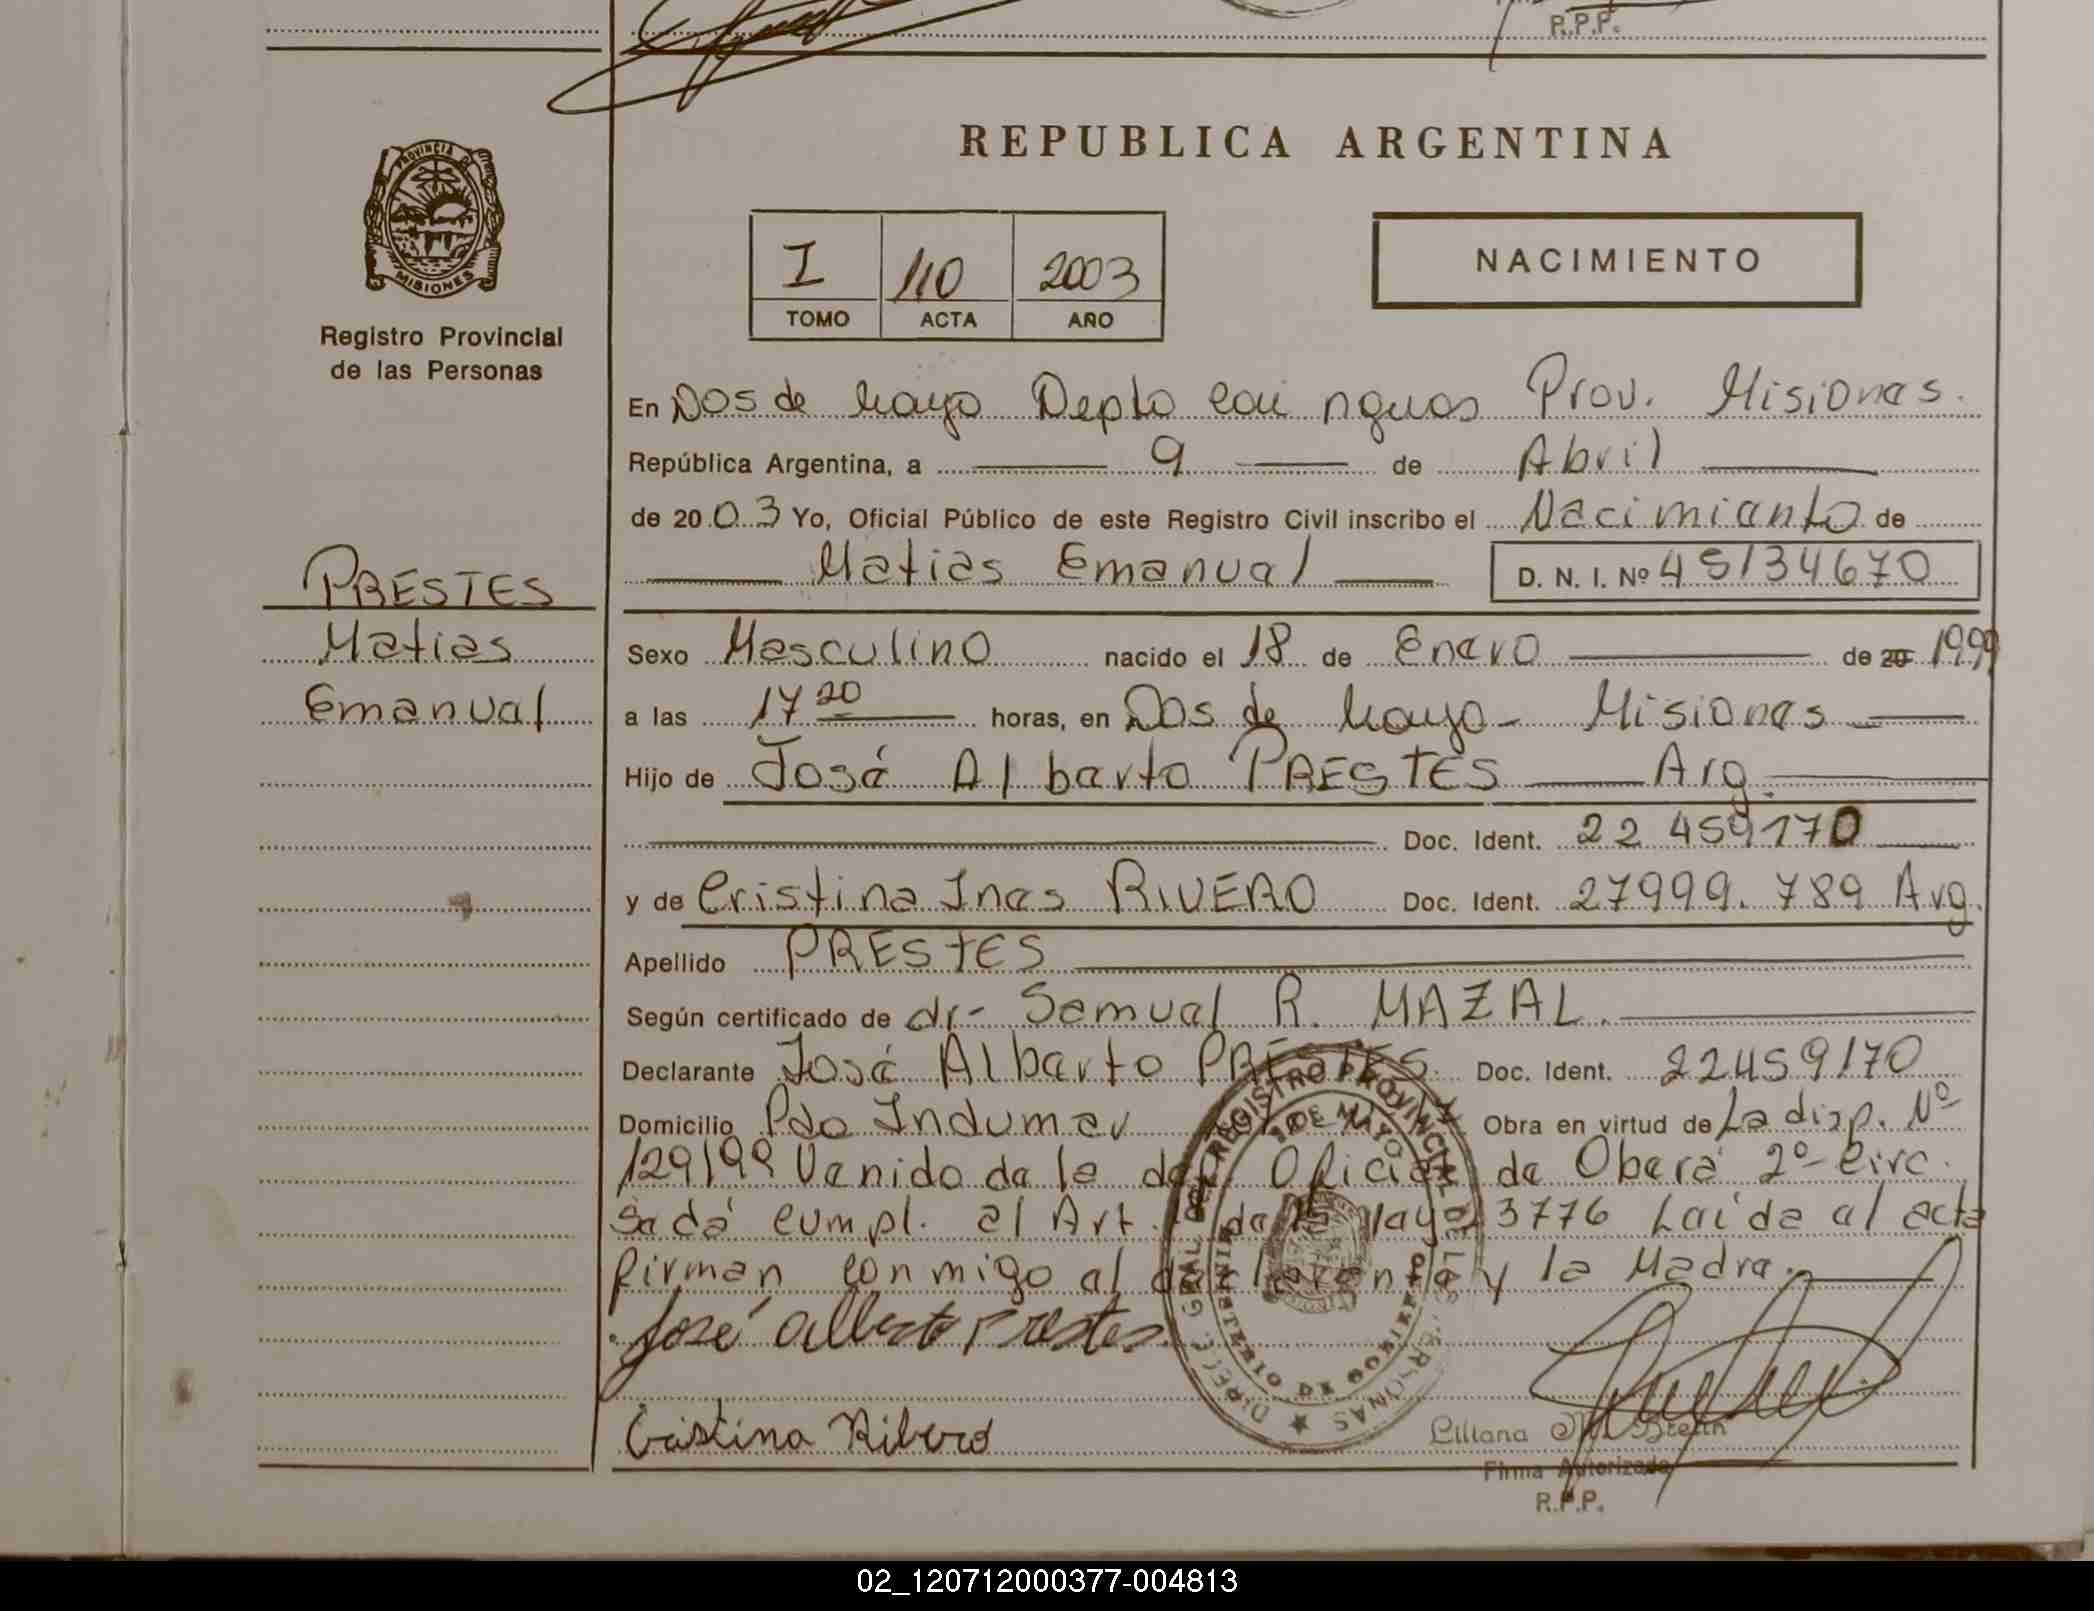 R.P.P.
REPUBLICA ARGENTINA
PROVINCIA DE
MISIONES
Registro Provincial
de las Personas
I 110 2003
TOMO ACTA AÑO
NACIMIENTO
En Dos de Mayo Depto Cainguas Prov. Misiones.
República Argentina, a 9 de Abril
de 2003 Yo, Oficial Público de este Registro Civil inscribo el Nacimiento de
Matias Emanuel D. N. I. Nº 45134670
PRESTES
Matias
Emanuel
Sexo Masculino nacido el 18 de Enero de 20 1999
a las 17 20 horas, en Dos de Mayo - Misiones
Hijo de José Alberto PRESTES Arg.
Doc. Ident. 22 459170
y de Cristina Ines RIVERO Doc. Ident. 27999.789 Arg.
Apellido PRESTES
Según certificado de dr- Samuel R. MAZAL.
Declarante José Alberto PRESTES. Doc. Ident. 22459170
Domicilio Pdo Indumar Obra en virtud de La disp. Nº
129/99 Venido de la Oficial de Obera 2º Circ.
se dá cumpl. al Art. de 3776 Leída el acta
firman conmigo el declarante y la Madre.
José Alberto Prestes
Cristina Ribero
DIREC. GRAL. DEL REGISTRO PROVINCIAL DE LAS PERSONAS
2 DE MAYO
MINISTERIO DE GOBIERNO
Liliana
Firma Autorizada
R.P.P.
02_120712000377-004813